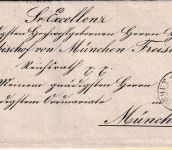 Sr Excellenz
digsten Hochwohlgebornen Herrn
bischof von München Freising
Reichsrath
Meinem gnädigsten Herrn
digstem Ordinariate
in
Münch